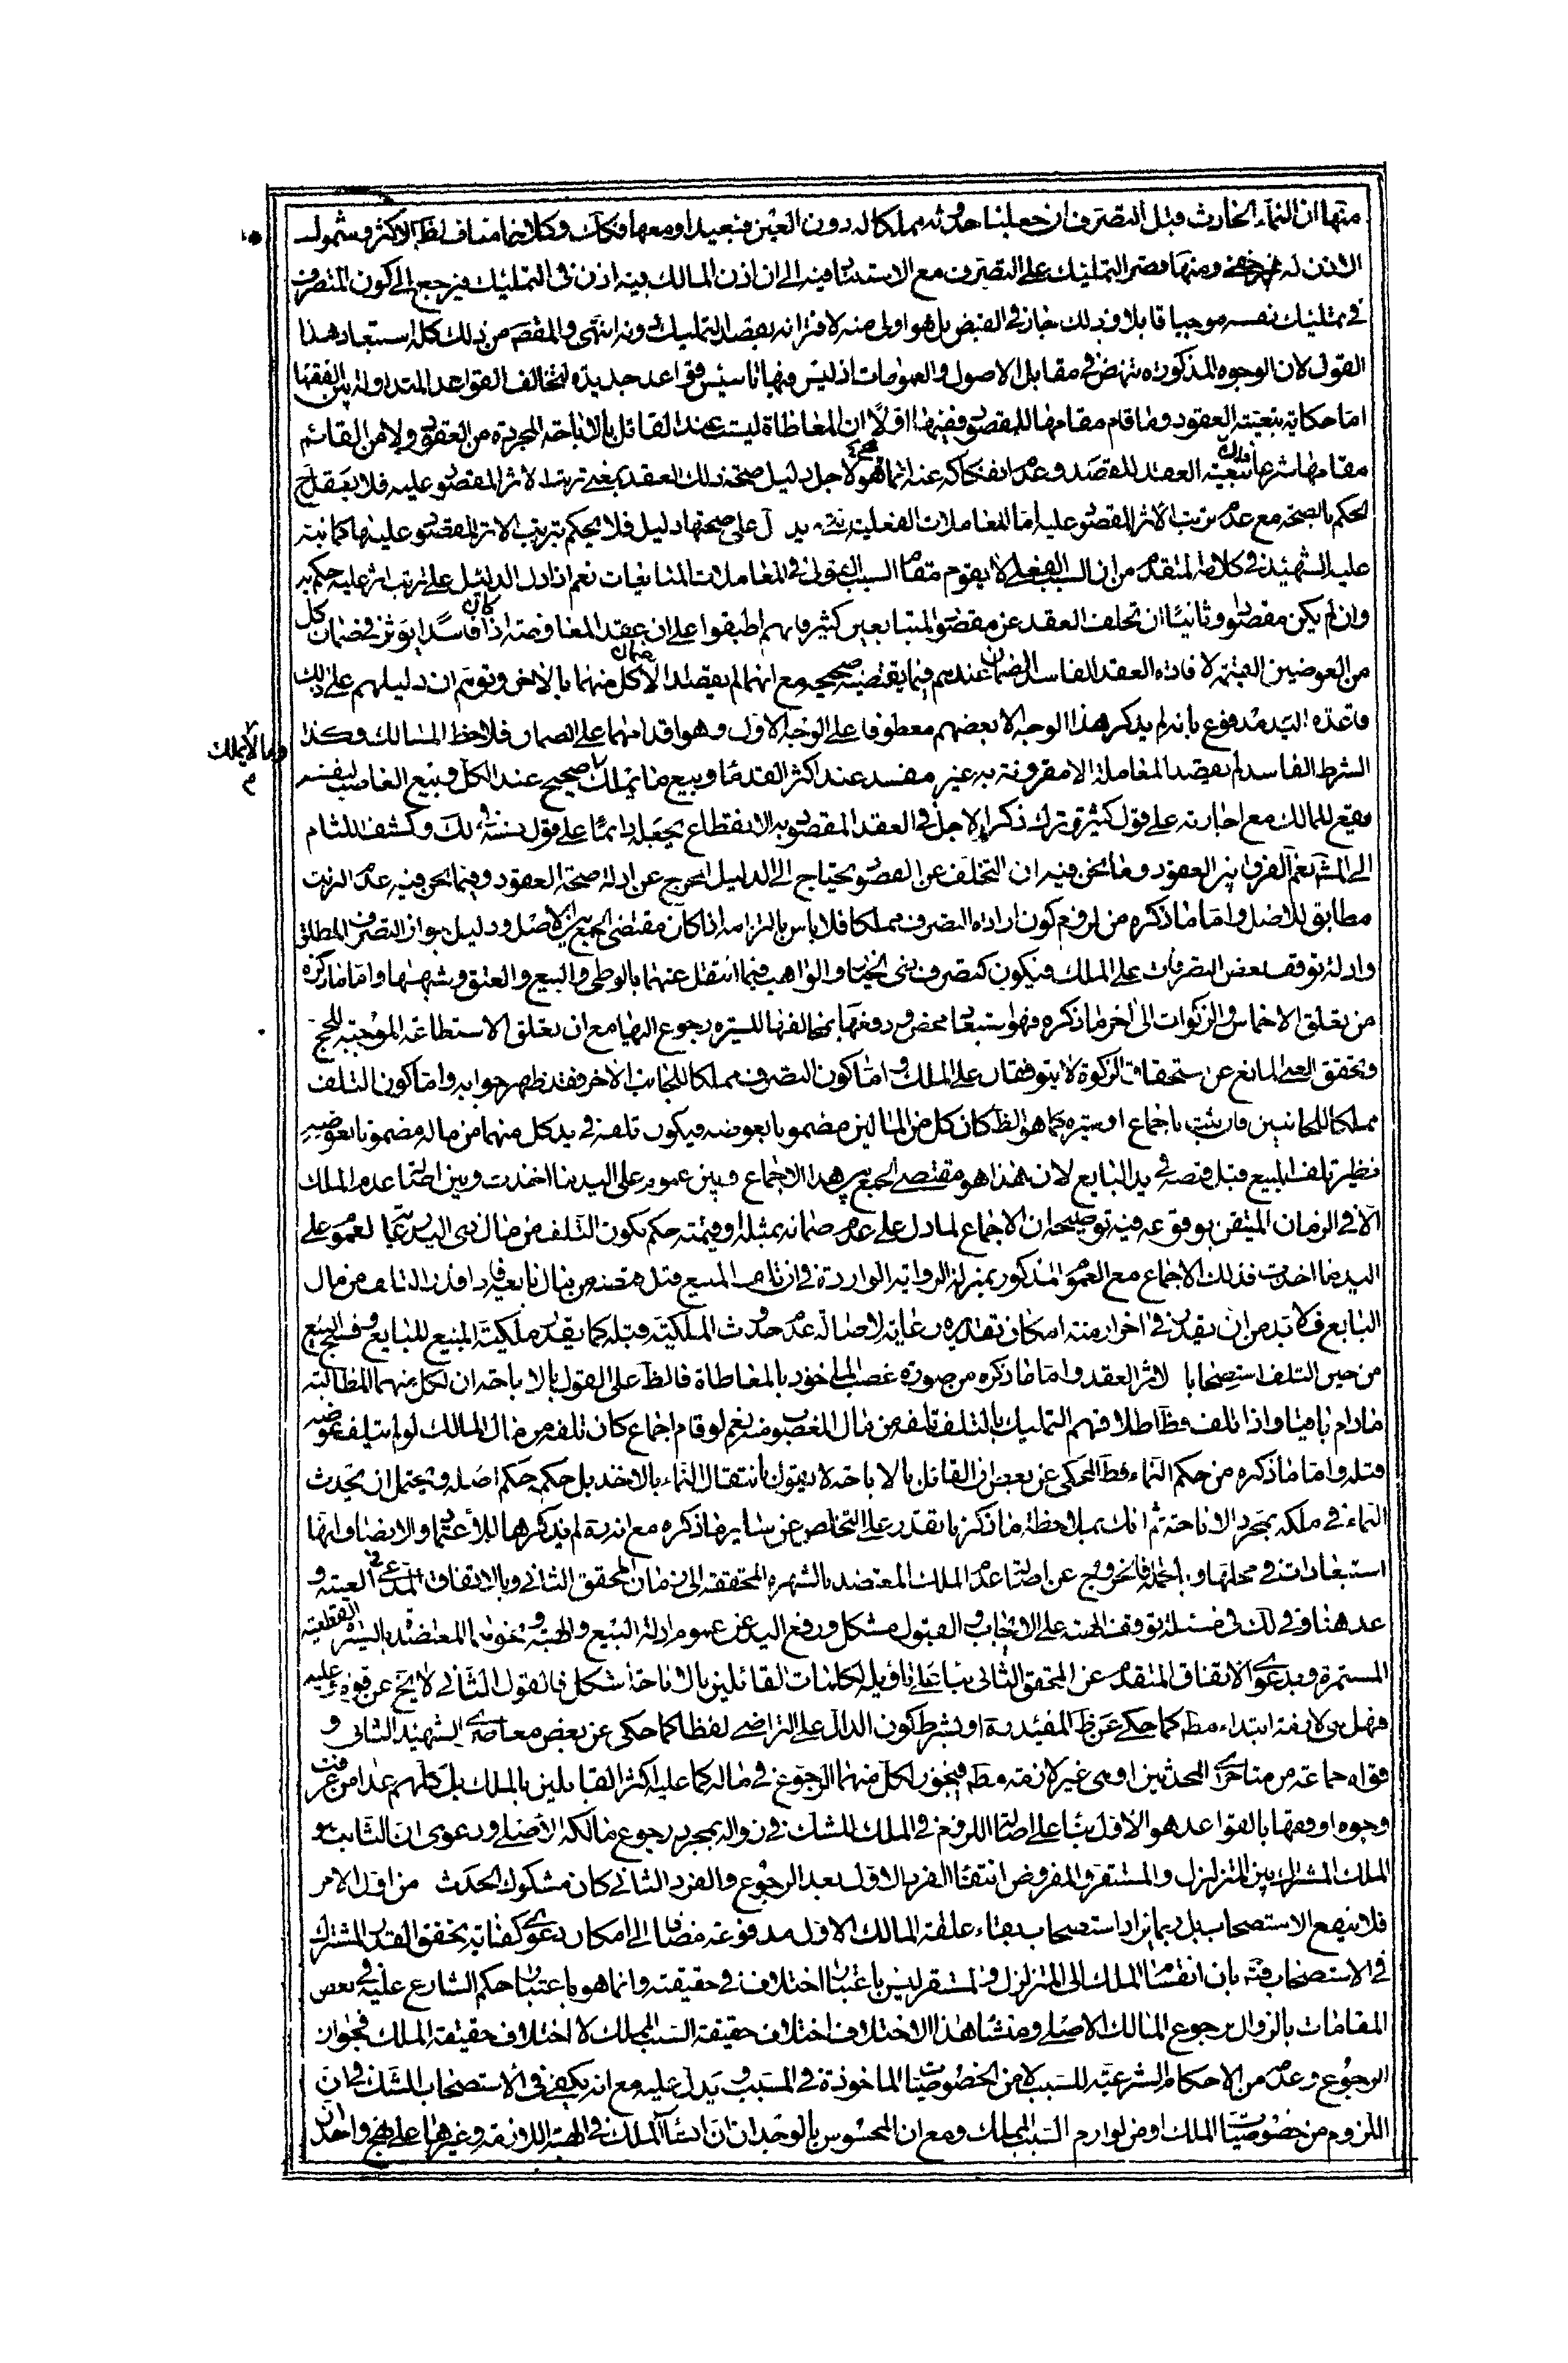 منها ان النماء الحادث قبل التصرف ان جعلنا حدوثه مملكا له دون العين فبعيد او معها فكك وكلاهما مناف لظ الاكثر وشمول
الاذن له خفى ومنها قصر التمليك على التصرف مع الاستناد فيه الى ان اذن المالك فيه اذن فى التمليك فيرجع الى كون المتصرف
فى تمليك نفسه موجبا قابلا وذلك جار فى القبض بل هو اولى منه لاقترانه بقصد التمليك دونه انتهى والمقصود من ذلك كله استبعاد هذا
القول لان الوجوه المذكورة تنهض فى مقابل الاصول والعمومات اذ ليس فيها تاسيس قواعد جديدة لتخالف القواعد المتداولة بين الفقها
اما حكاية تبعية العقود وما قام مقامها للمقصود ففيها اولا ان المعاطاة ليست عند القائل بالاباحة المجردة من العقود ولا من القائم
مقامها شرعا فان تبعية العقد للقصد وعدم انفكاكه عنه انما هو لاجل دليل صحة ذلك العقد بمعنى ترتب الاثر المقصود عليه فلا يعقل ح
الحكم بالصحة مع عدم ترتب الاثر المقصود عليه اما المعاملات الفعلية التى لم يدل على صحتها دليل فلا يحكم بترتب الاثر المقصود عليها كما نبه
عليه الشهيد فى كلامه المتقدم من ان السبب الفعلى لا يقوم مقام السبب القولى فى المعاملات المبايعات نعم اذا دل الدليل على ترتب اثر عليه حكم به
وان لم يكن مقصودا وثانيا ان تخلف العقد عن مقصود المتبايعين كثير فانهم اطبقوا على ان عقد المعاوضة اذا كان فاسدا يؤثر فى ضمان كل
من العوضين القيمة لافادة العقد الفاسد الضمان عندهم فيما يقتضيه صحيحه مع انهما لم يقصدا الا ضمان كل منهما بالاخر وتوهم ان دليلهم على ذلك
قاعدة اليد مدفوع بانه لم يذكر هذا الوجه الا بعضهم معطوفا على الوجه الاول وهو اقدامهما على الضمان فلاحظ المسالك وكذا
الشرط الفاسد لم يقصد المعاملة الا مقرونة به غير مفسد عند اكثر القدماء وبيع ما يملك وما لا يملك صحيح عند الكل وبيع الغاصب لنفسه
يقع للمالك مع اجازته على قول كثير وترك ذكر الاجل فى العقد المقصود به الانقطاع يجعله دائما على قول نسبه فى لك وكشف اللثام
الى المش نعم الفرق بين العقود وما نحن فيه ان التخلف عن المقصود يحتاج الى الدليل المخرج عن ادلة صحة العقود وفيما نحن فيه عدم الترتب
مطابق للاصل واما ما ذكره من لزوم كون ارادة التصرف مملكا فلا باس بالتزامه اذا كان مقتضى الجمع بين الاصل ودليل جواز التصرف المطلق
وادلة توقف بعض التصرفات على الملك فيكون كتصرف ذى الخيار والواهب فيما انتقل عنهما بالوطى والبيع والعتق وشبهها واما ما ذكره
من تعلق الاخماس والزكوات الى اخر ما ذكره فهو استبعاد محض ودفعها بمخالفتها للسيرة رجوع اليها مع ان تعلق الاستطاعة الموجبة للحج
وتحقق الغنى المانع عن استحقاق الزكوة لا يتوقفان على الملك واما كون التصرف مملكا للجانب الاخر فقد ظهر جوابه واما كون التلف
مملكا للجانبين فان ثبت باجماع او سيرة كما هو الظ كان كل من المالين مضمونا بعوضه فيكون تلفه فى يد كل منهما من ماله مضمونا بعوضه
نظير تلف المبيع قبل قبضه فى يد البايع لان هذا هو مقتضى الجمع بين هذا الاجماع وبين عموم على اليد ما اخذت وبين اصالة عدم الملك
الا فى الزمان المتيقن بوقوعه فيه توضيحه ان الاجماع لما دل على عدم ضمانه بمثله او قيمته حكم بكون التلف من مال ذى اليد رعاية لعموم على
اليد ما اخذت فذلك الاجماع مع العموم المذكور بمنزلة الرواية الواردة فى ان تلف المبيع قبل قبضه من مال بايعه فاذا قدر التلف من مال
البايع فلا بد من ان يقدر فى اخر ازمنة امكان تقديره رعاية لاصالة عدم حدوث الملكية قبله كما يقدر ملكية المبيع للبايع وفسخ البيع
من حين التلف استصحابا لاثر العقد واما ما ذكره من صورة غصب الماخوذ بالمعاطاة فالظ على القول بالاباحة ان لكل منهما المطالبة
مادام باقيا واذا تلف فظ اطلاقهم التمليك بالتلف تلفه من مال المغصوب منه نعم لو قام اجماع كان تلفه من مال المالك لو لم يتلف عوضه
قبله واما ما ذكره من حكم النماء فظ المحكى عن بعض ان القائل بالاباحة لا يقول بانتقال النماء بالاخذ بل حكمه حكم اصله ويحتمل ان يحدث
النماء فى ملكه بمجرد الاباحة ثم انك بملاحظة ما ذكرنا تقدر على التخلص عن ساير ما ذكره مع انه ره لم يذكرها للاعتماد والانصاف انها
استبعادات فى محلها وبالجملة فالخروج عن اصالة عدم الملك المعتضد بالشهرة المحققة الى زمان المحقق الثانى وبالاتفاق المدعى فى الغنية و
عد هنا وفى لك فى مسئلة توقف الهبة على الايجاب والقبول مشكل ورفع اليد عن عموم ادلة البيع والهبة ونحوهما المعتضد بالسيرة القطعية
المستمرة وبدعوى الاتفاق المتقدم عن المحقق الثانى بناء على تاويله لكلمات القائلين بالاباحة اشكل فالقول الثانى لا يخ عن قوة وعليه
فهل هى لازمة ابتداء مط كما حكى عن ظ المفيد ره او بشرط كون الدال على التراضى لفظا كما حكى عن بعض معاصرى الشهيد الثانى و
قواه جماعة من متاخرى المحدثين او هى غير لازمة مط فيجوز لكل منهما الرجوع فى ماله كما عليه اكثر القايلين بالملك بل كلهم عدا من عرفت
وجوه اوفقها بالقواعد هو الاول بناء على اصالة اللزوم فى الملك للشك فى زواله بمجرد رجوع مالكه الاصلى ودعوى ان الثابت هو
الملك المشترك بين المتزلزل والمستقر والمفروض انتفاء الفرد الاول بعد الرجوع والفرد الثانى كان مشكوك الحدث من اول الامر
فلا ينفع الاستصحاب بل ربما يزاد استصحاب بقاء علقة المالك الاول مدفوعة مضافا الى امكان دعوى كفاية تحقق القدر المشترك
فى الاستصحاب فته بان انقسام الملك الى المتزلزل والمستقر ليس باعتبار اختلاف فى حقيقته وانما هو باعتبار حكم الشارع عليه فى بعض
المقامات بالزوال برجوع المالك الاصلى ومنشا هذا الاختلاف اختلاف حقيقة السبب المملك لا اختلاف حقيقة الملك فجواز
الرجوع وعدمه من الاحكام الشرعية للسبب لا من الخصوصيات الماخوذة فى المسبب ويدل عليه مع انه يكفى فى الاستصحاب الشك فى ان
اللزوم من خصوصيات الملك او من لوازم السبب المملك ومع ان المحسوس بالوجدان ان انشاء الملك فى الهبة اللازمة وغيرها على نهج واحد ان